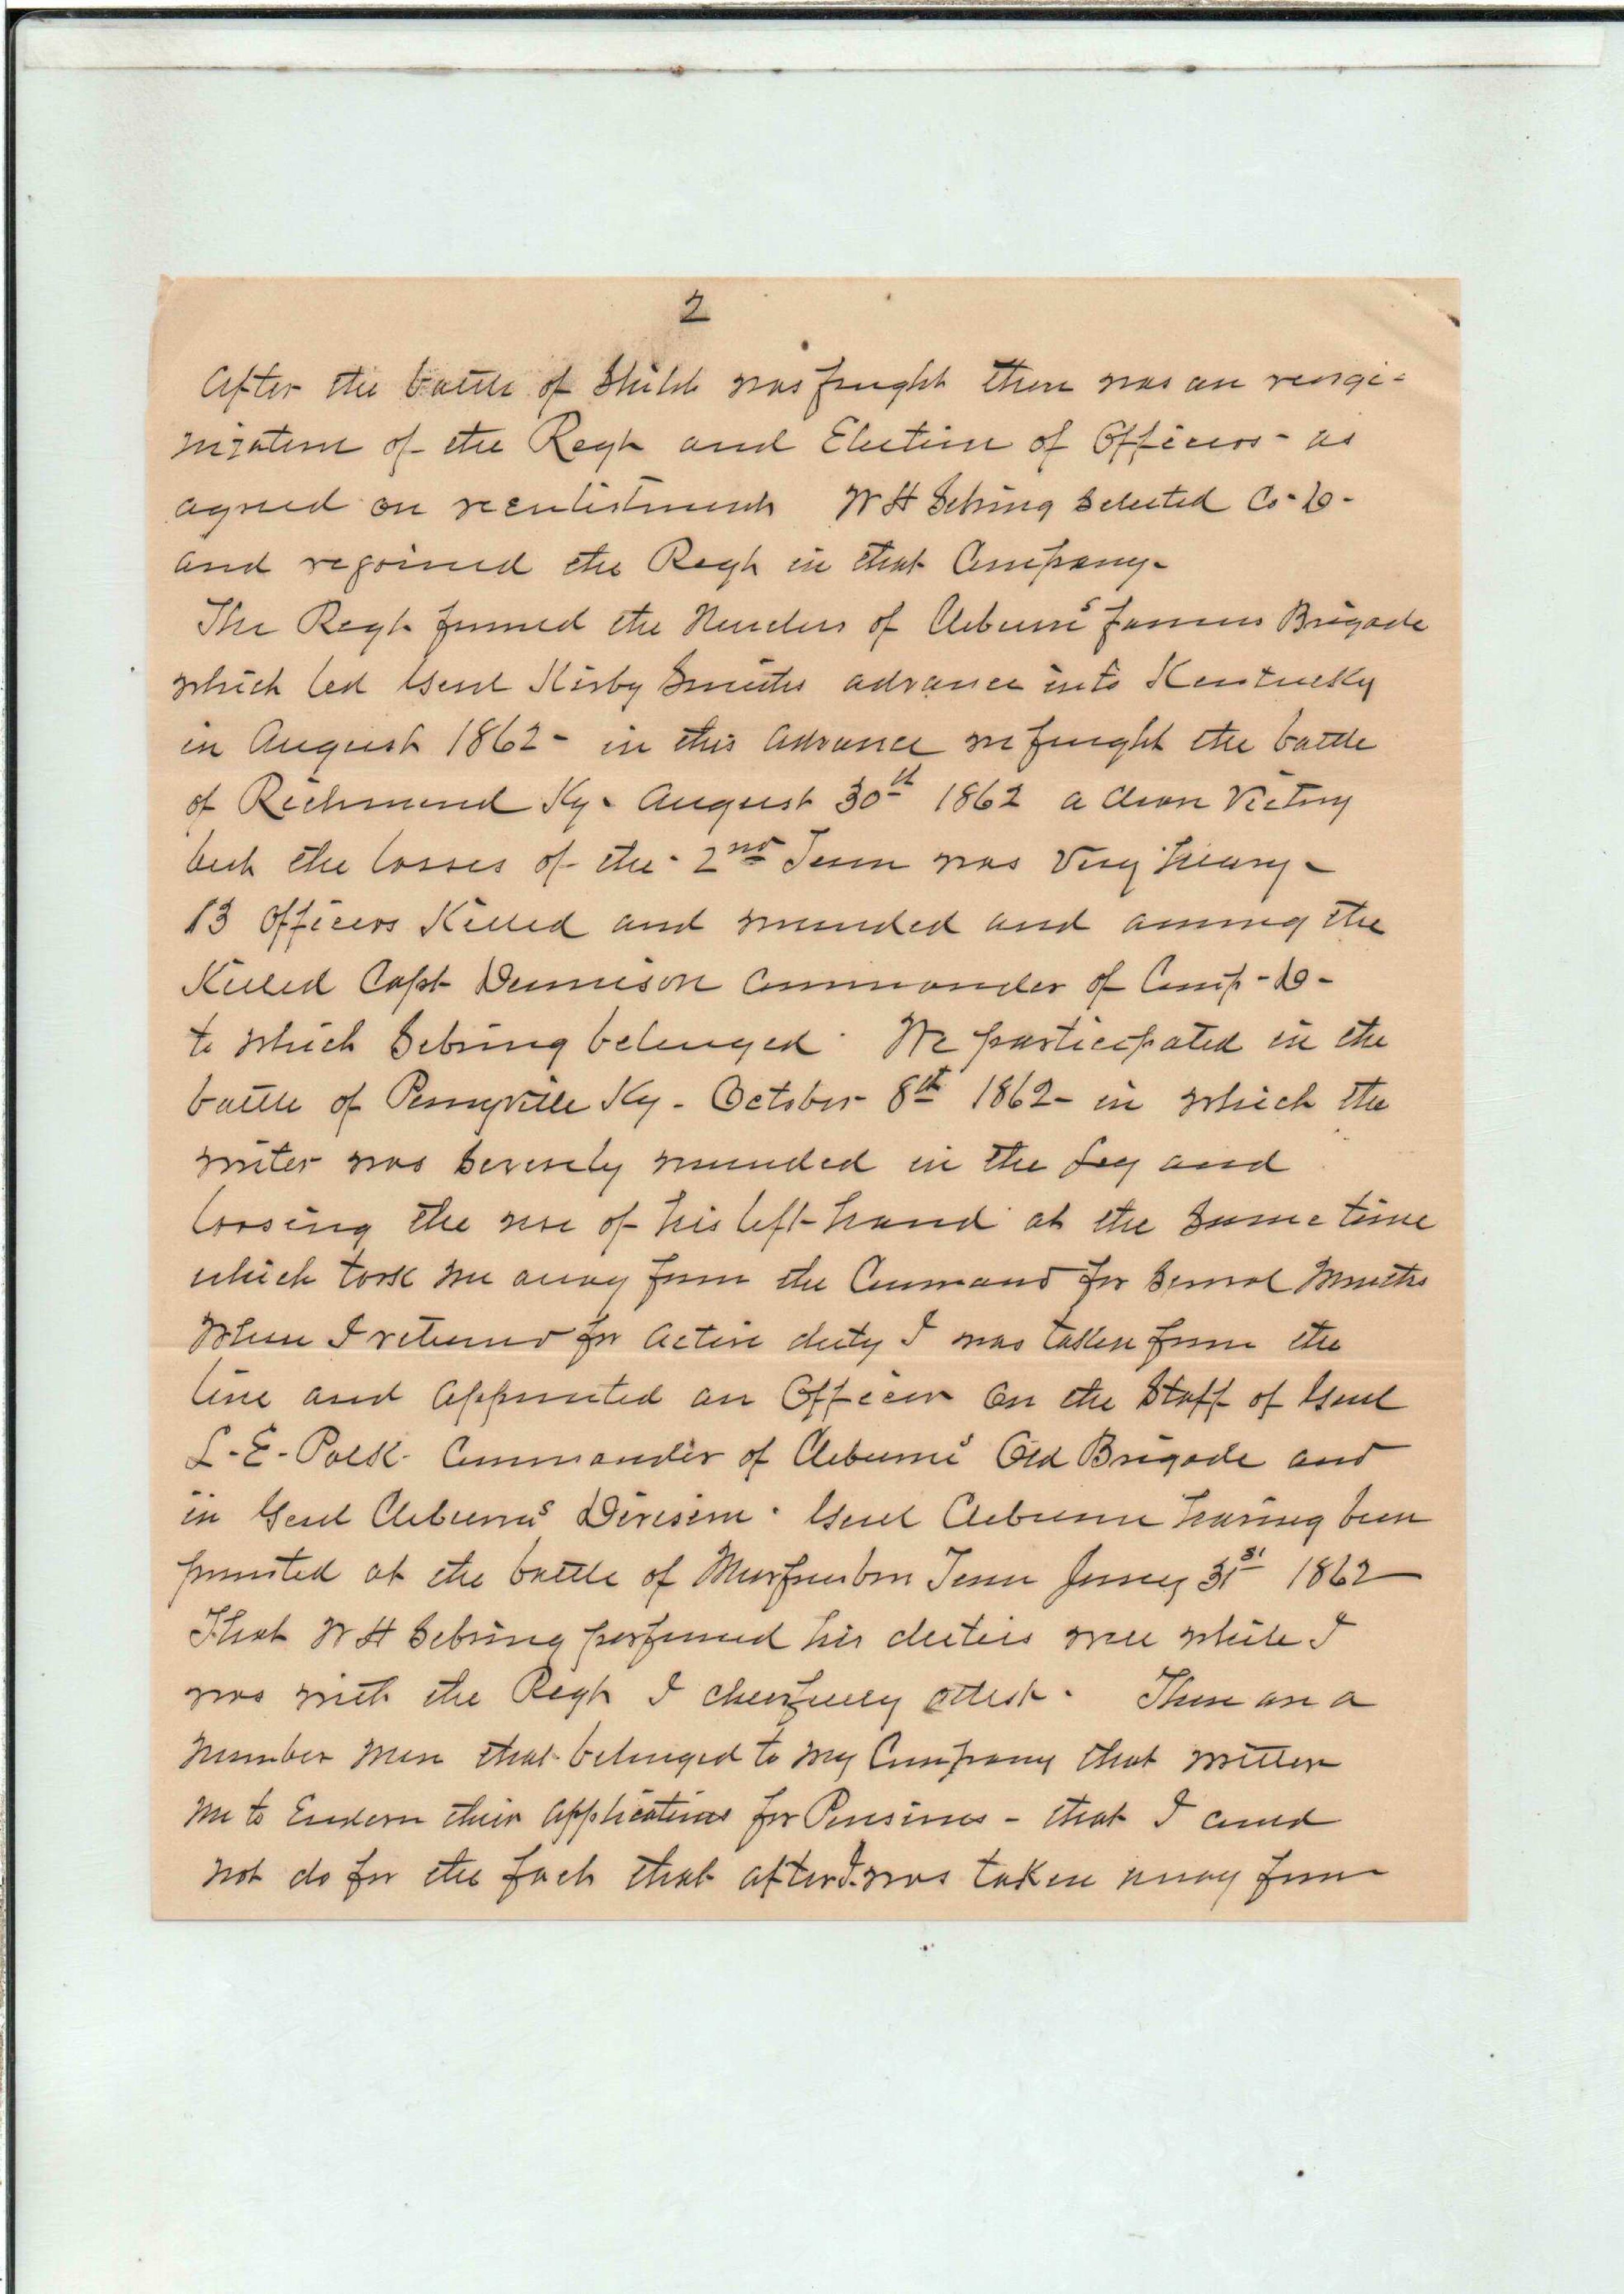 2
After the battle of Shiloh was fought there was an reorgi-
nization of the Regt and Election of Officers - as
agreed on reenlistment W H Sebring Selected Co - D -
and rejoined the Regt in that Company -
The Regt formed the Nucleus of Cleburne's famous Brigade
which led Genl Kirby Smiths advance into Kentucky
in August 1862 - in this advance we fought the battle
of Richmond Ky - August 30th 1862 a clean Victory
but the losses of the - 2nd Tenn was Very heavy -
13 Officers Killed and wounded and among the
Killed Capt Dennison Commander of Comp - D -
to which Sebring belonged. We participated in the
battle of Perryville Ky - October 8th 1862 - in which the
writer was Severely wounded in the Leg and
loosing the use of his left hand at the same time
which took me away from the Command for Several Months
When I returned for Active duty I was taken from the
line and Appointed an Officer On the Staff of Genl
L - E - Polk - Commander of Cleburne's Old Brigade and
in Genl Cleburne's Division. Genl Cleburne having been
promoted at the battle of Murfreesboro Tenn 31st 1862
That W H Sebring performed his duties well while I
was with the Regt I cheerfully attest. There are a
Number Men that belonged to My Company that written
Me to Endorse their Applications for Pensions - that I could
not do for the fact that after I was taken away from